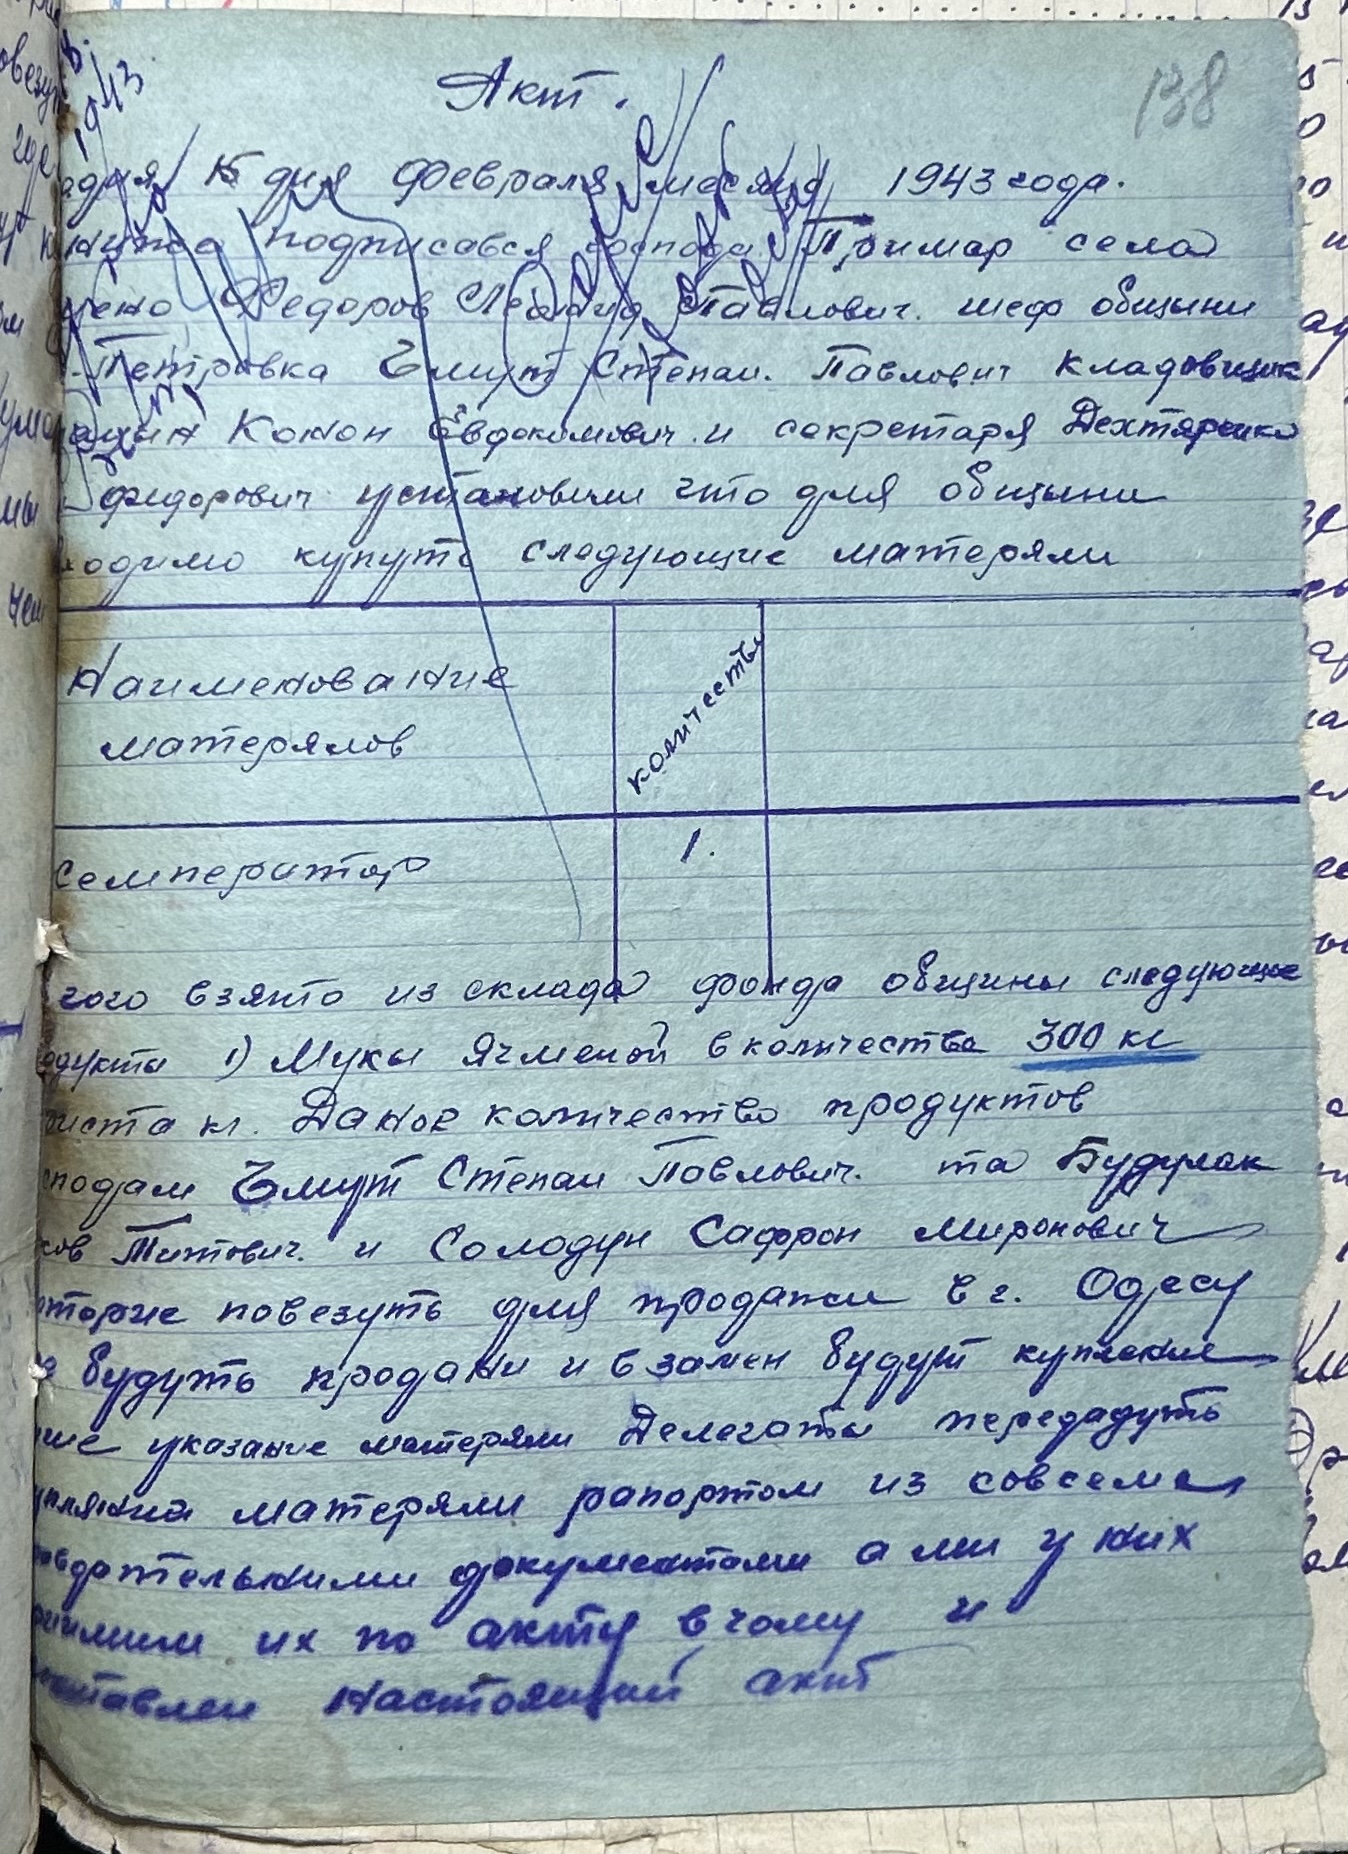 138
Акт.
1943.
15 дня февраля месяца 1943 года.
подписався господа Примар села
Федоров Леонид Павлович. шеф общыни
Петровка Чмут Степан. Павлович кладовщик
Конон Евдокимович. и секретаря Дехтяренко
Фидорович установили что для общыни
ходимо купуть следующие матеряли
Наименование
матерялов
количества
семператор
1.
того взято из склада фонда общины следующие
одукта 1) Муки Ячменой в количества 300 кг
триста кг. Даное количество продуктов
сподам Чмут Степан Павлович. та Будулак
ков Титович. и Солодун Сафрон Миронович
оторие повезуть для продажи в г. Одесу
будуть продани и взамен будут купление
ше указание матеряли Делегати передадуть
упляния матеряли рапортом из совсеми
авдательними документами а ми у них
риимим их по акту в чому и
оставлен настоящий акт